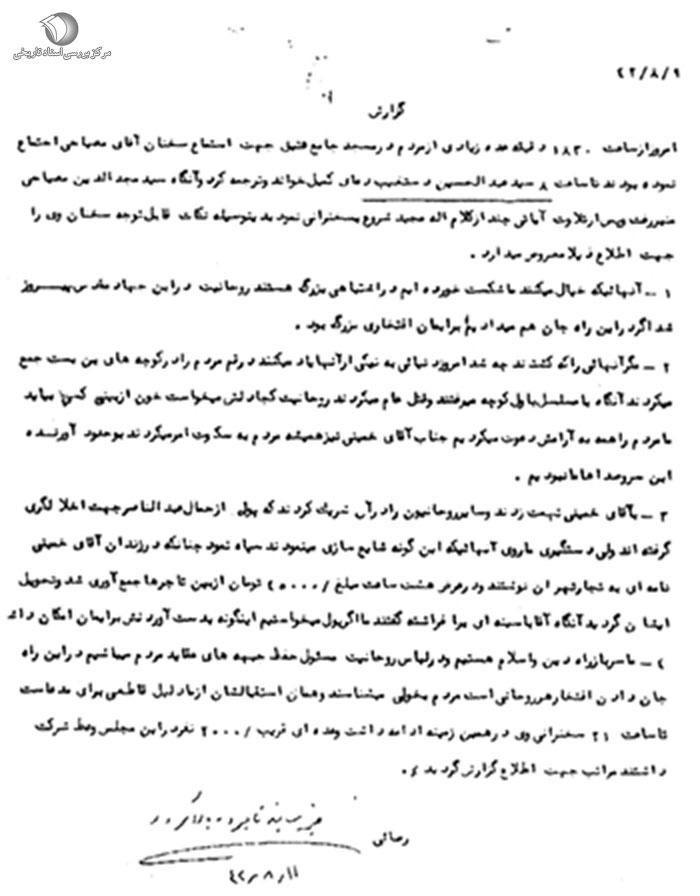 مرکز بررسی اسناد تاریخی
۴۲/۸/۹
گزارش
امروز از ساعت ۱۸۳۰ دقیقه عده زیادی از مردم در مسجد جامع عتیق جهت استماع سخنان آقای مصباحی اجتماع
نموده بودند تا ساعت ۸ سید عبدالحسین دستغیب دعای کمیل خواند و ترجمه کرد و آنگاه سید مجدالدین مصباحی
منبر رفت و پس از تلاوت آیاتی چند از کلام اله مجید شروع بسخنرانی نمود بدینوسیله نکات قابل توجه سخنان وی را
جهت اطلاع ذیلا معروض میدارد .
۱ ــ آنهائیکه خیال میکنند ما شکست خورده ایم در اشتباهی بزرگ هستند روحانیت در این جهاد مقدس پیروز
شد اگر در این راه جان هم میدادیم برایمان افتخاری بزرگ بود .
۲ ــ مگر آنهائی را که کشتند چه شد امروز دنیائی به نیکی از آنها یاد میکنند در قم مردم را در کوچه های بن بست جمع
میکردند آنگاه با مسلسل باول کوچه میرفتند و قتل عام میکردند روحانیت کجا دلش میخواست خون از بینی کسی بیاید
ما مردم را همه به آرامش دعوت میکردیم جناب آقای خمینی نیز همیشه مردم به سکوت امر میکردند بوجود آورنده
این سروصداها ما نبودیم .
۳ ــ بآقای خمینی تهمت زدند و سایر روحانیون را در آن شریک کردند که پولی از جمال عبدالناصر جهت اخلالگری
گرفته اند ولی دستگیری ما روی آنهائیکه این گونه شایع سازی مینمودند سیاه نمود چنانکه در زندان آقای خمینی
نامه ای به تجار تهران نوشتند و در عرض هشت ساعت مبلغ /۴۵۰۰۰ تومان از بین تاجرها جمع آوری شد و تحویل
ایشان گردید آنگاه آقا با سینه ای برافراشته گفتند ما اگر پول میخواستیم اینگونه بدست آوردنش برایمان امکان داشت
۴ ــ ما سرباز راه دین و اسلام هستیم و در لباس روحانیت مسئول حفظ جبهه های عقاید مردم میباشیم در این راه
جان دادن افتخار هر روحانی است مردم بخوبی میشناسند و همان استقبالشان از ما دلیل قاطعی برای مدعاست
تا ساعت ۲۱ سخنرانی وی در همین زمینه ادامه داشت و عده ای قریب /۲۰۰۰ نفر در این مجلس وعظ شرکت
داشتند مراتب جهت اطلاع گزارش گردید .
رضائی
۴۲/۸/۱۱